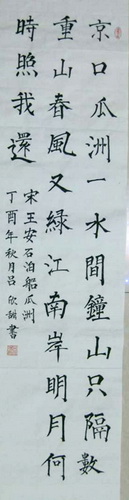 京口瓜洲一水間鐘山只隔數
重山春風又綠江南岸明月何
時照我還
宋王安石泊船瓜洲
丁酉年秋月呂欣韻書